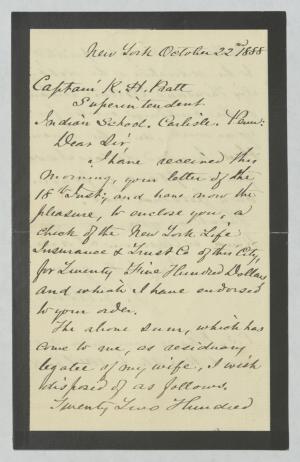 New York October 22nd 1888
Captain R. H. Pratt
Superintendent
Indian School. Carlisle. Penn:
Dear Sir
I have received this
morning, your letter of the
18th Inst; and have now the
pleasure, to enclose you, a
check of the New York Life
Insurance & Trust Co of this City,
for Twenty Five Hundred Dollars
and which I have endorsed
to your order.
The above sum, which has
come to me, as residuary
legatee of my wife, I wish
disposed of as follows.
Twenty Two Hundred